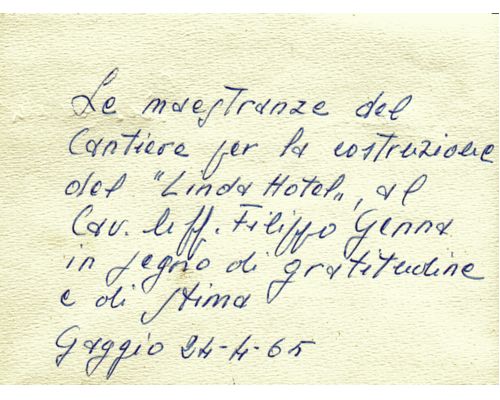 Le maestranze del
Cantiere per la costruzione
del "Linda Hotel", al
Cav. Uff. Filippo Genna
in segno di gratitudine
e di stima
Gaggio 24-4-65